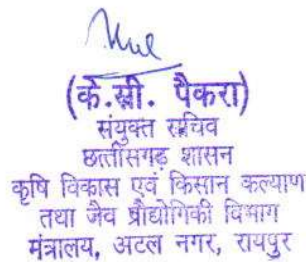 (के.सी. पैकरा)
संयुक्त सचिव
छत्तीसगढ़ शासन
कृषि विकास एवं किसान कल्याण
तथा जैव प्रौद्योगिकी विभाग
मंत्रालय, अटल नगर, रायपुर